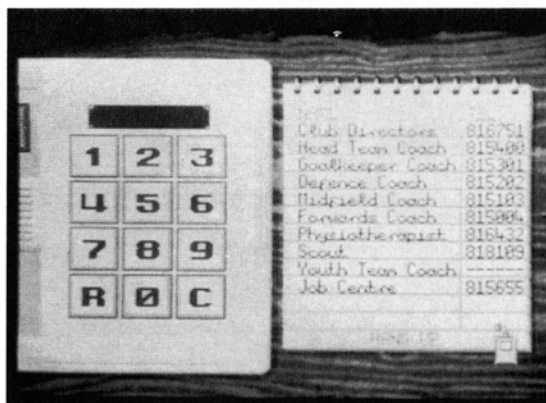 1 2 3
4 5 6
7 8 9
R 0 C
Club Directors 816751
Head Team Coach 815400
Goalkeeper Coach 815301
Defence Coach 815202
Midfield Coach 815103
Forwards Coach 815004
Physiotherapist 816432
Scout 818109
Youth Team Coach ------
Job Centre 815655
HANG UP